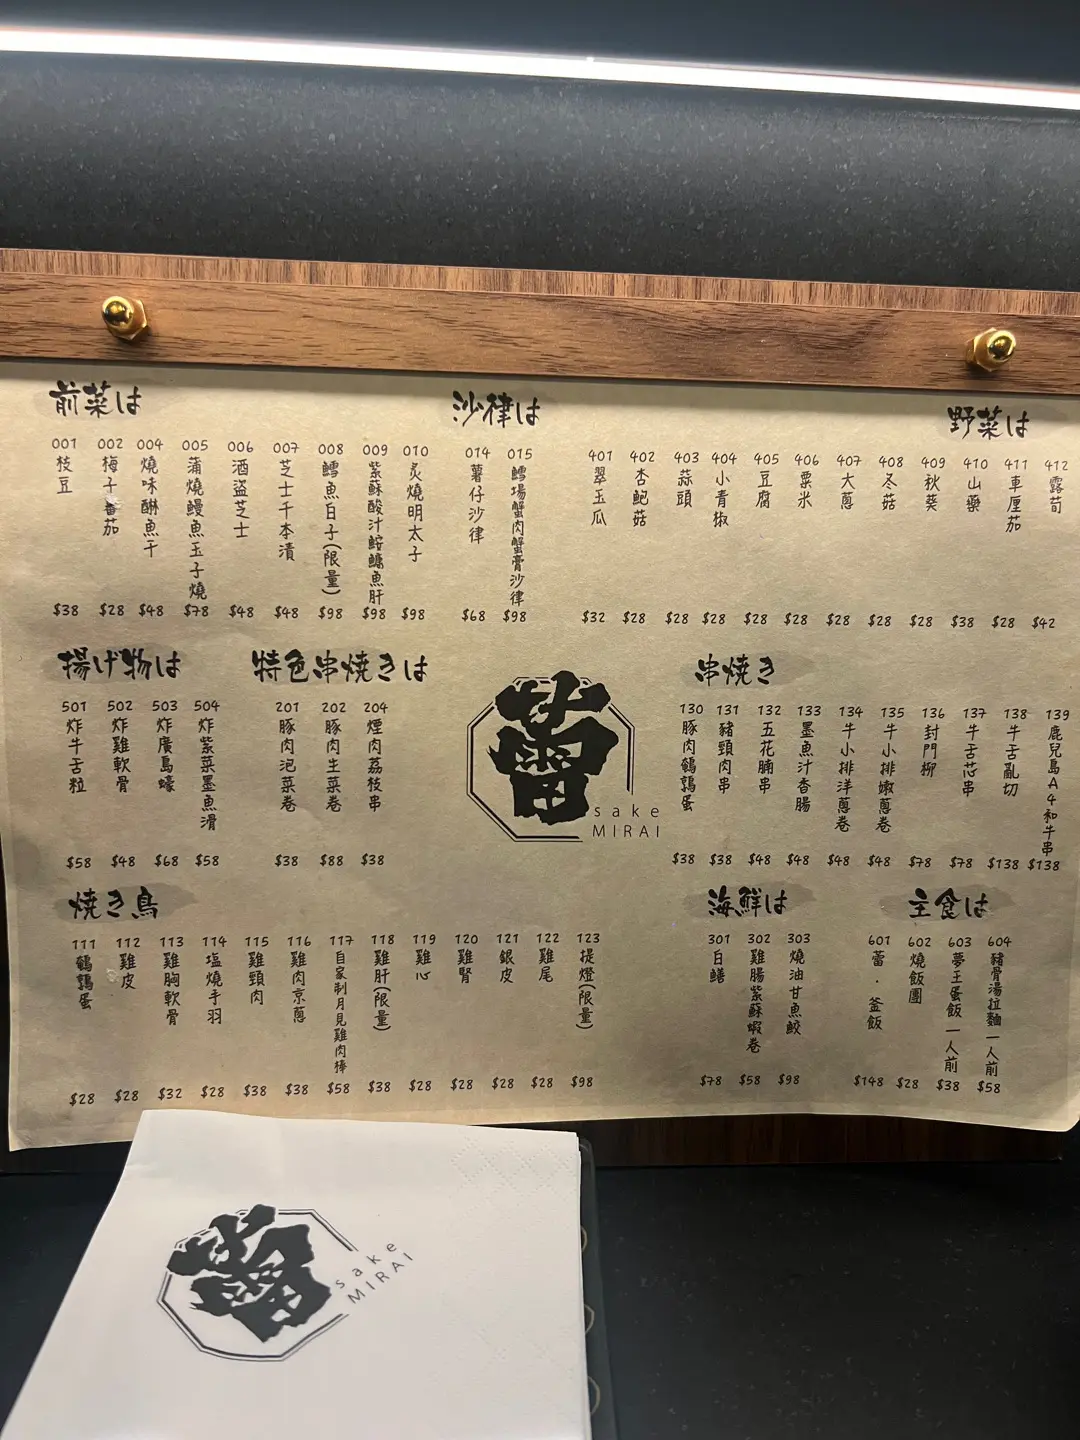 前菜は
001 枝豆 $38
002 梅子番茄 $28
004 燒味醂魚干 $48
005 蒲燒鰻魚玉子燒 $78
006 酒盜芝士 $48
007 芝士千本漬 $48
008 鱈魚白子(限量) $98
009 紫酥酸汁鮟鱇魚肝 $98
010 炙燒明太子 $98
沙律は
014 薯仔沙律 $68
015 鱈場蟹肉蟹膏沙律 $98
野菜は
401 翠玉瓜 $32
402 杏鮑菇 $28
403 蒜頭 $28
404 小青椒 $28
405 豆腐 $28
406 粟米 $28
407 大蔥 $28
408 冬菇 $28
409 秋葵 $28
410 山藥 $38
411 車厘茄 $28
412 露荀 $42
揚げ物は
501 炸牛舌粒 $58
502 炸雞軟骨 $48
503 炸廣島蠔 $68
504 炸紫菜墨魚滑 $58
特色串焼きは
201 豚肉泡菜卷 $38
202 豚肉生菜卷 $88
204 煙肉荔枝串 $38
蕾
sake
MIRAI
串焼き
130 豚肉鵪鶉蛋 $38
131 豬頸肉串 $38
132 五花腩串 $48
133 墨魚汁香腸 $48
134 牛小排洋蔥卷 $48
135 牛小排嫩蔥卷 $48
136 封門柳 $78
137 牛舌芯串 $78
138 牛舌亂切 $138
139 鹿兒島A4和牛串 $138
焼き鳥
111 鵪鶉蛋 $28
112 雞皮 $28
113 雞胸軟骨 $32
114 塩燒手羽 $28
115 雞頸肉 $38
116 雞肉京蔥 $38
117 自家制月見雞肉棒 $58
118 雞肝(限量) $38
119 雞心 $28
120 雞腎 $28
121 銀皮 $28
122 雞尾 $28
123 提燈(限量) $98
海鮮は
301 白鱔 $78
302 雞腸紫蘇蝦卷 $58
303 燒油甘魚鮫 $98
主食は
601 蕾·釜飯 $148
602 燒飯團 $28
603 夢王蛋飯 一人前 $38
604 豬骨湯拉麵 一人前 $58
蕾
sake
MIRAI